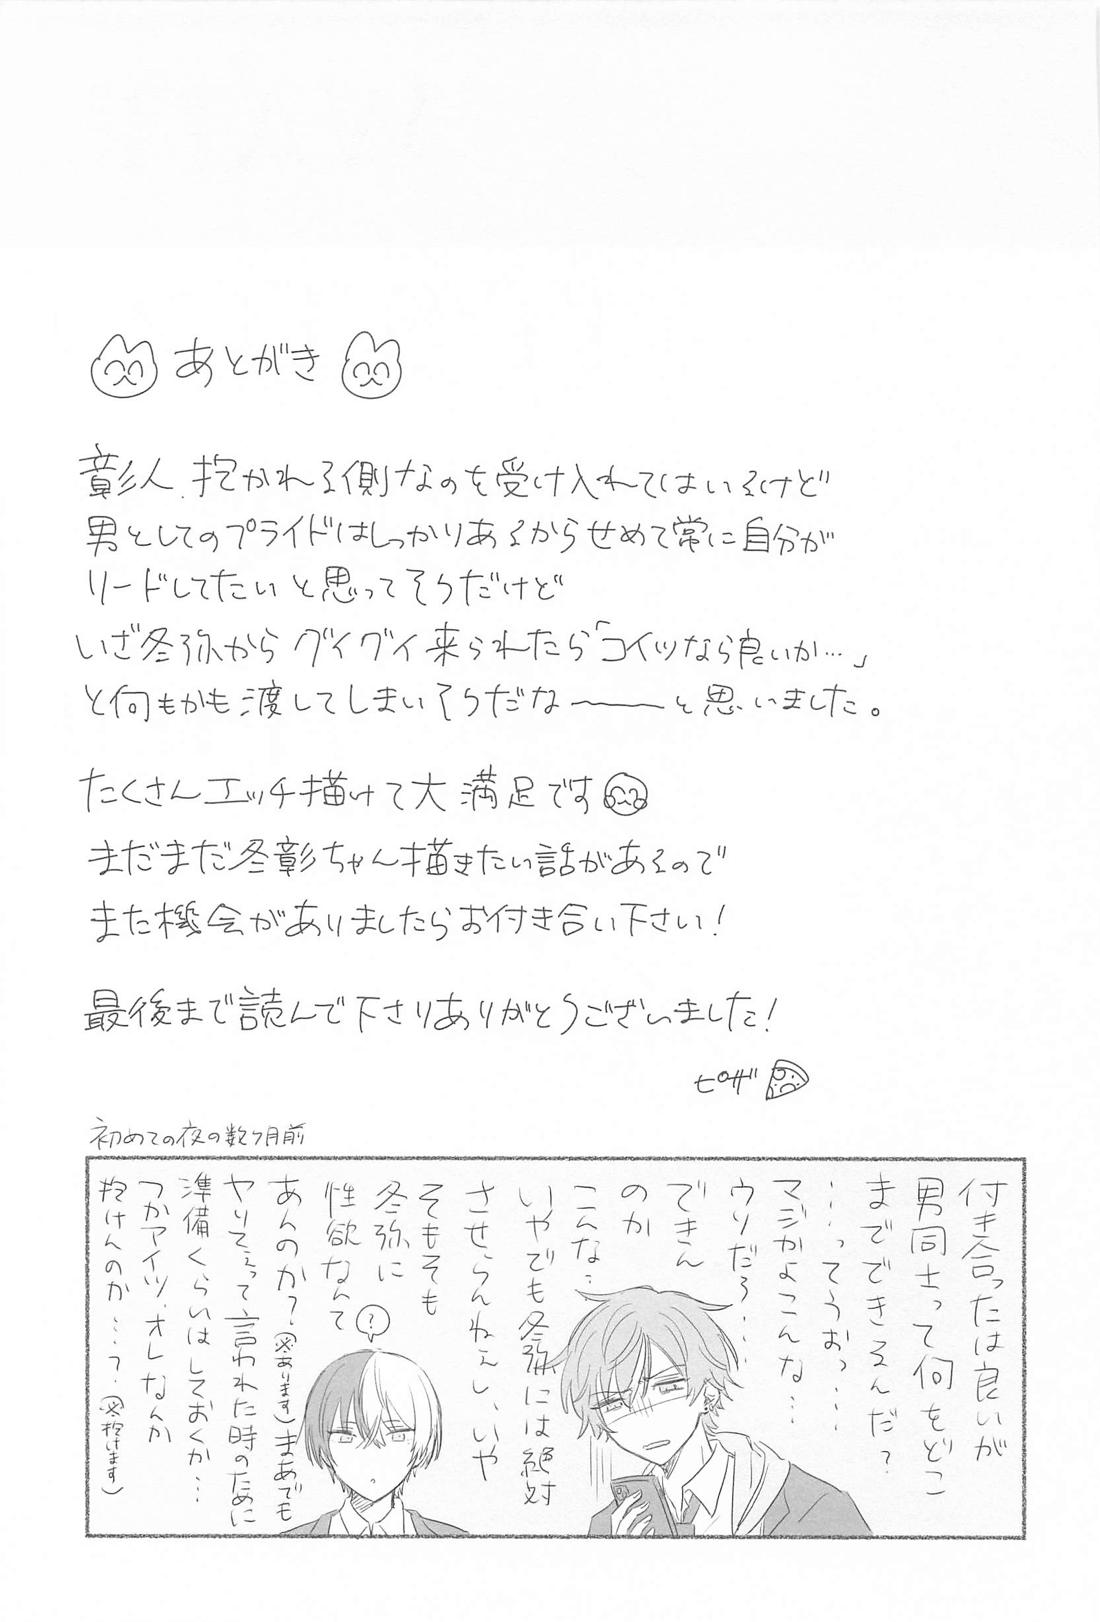 あとがき
彰人、抱かれる側なのを受け入れてはいるけど
男としてのプライドはしっかりあるからせめて常に自分が
リードしてたいと思ってそうだけど
いざ冬弥からグイグイ来られたら「コイツなら良いか…」
と何もかも渡してしまいそうだな〜〜と思いました。
たくさんエッチ描けて大満足です
まだまだ冬彰ちゃん描きたい話があるので
また機会がありましたらお付き合い下さい！
最後まで読んで下さりありがとうございました！
ピザ
初めての夜の数ヶ月前
付き合ったは良いが
男同士って何をどこ
までできるんだ？
…ってうお…
マジかよこんな…
ウソだろ…
できん
のか
こんな…
いやでも冬弥には絶対
させらんねぇし、いや
そもそも
冬弥に
性欲なんて
？
あんのか？（※あります）まあでも
ヤりてぇって言われた時のために
準備くらいはしておくか…
つかアイツ、オレなんか
抱けんのか…？（※抱けます）